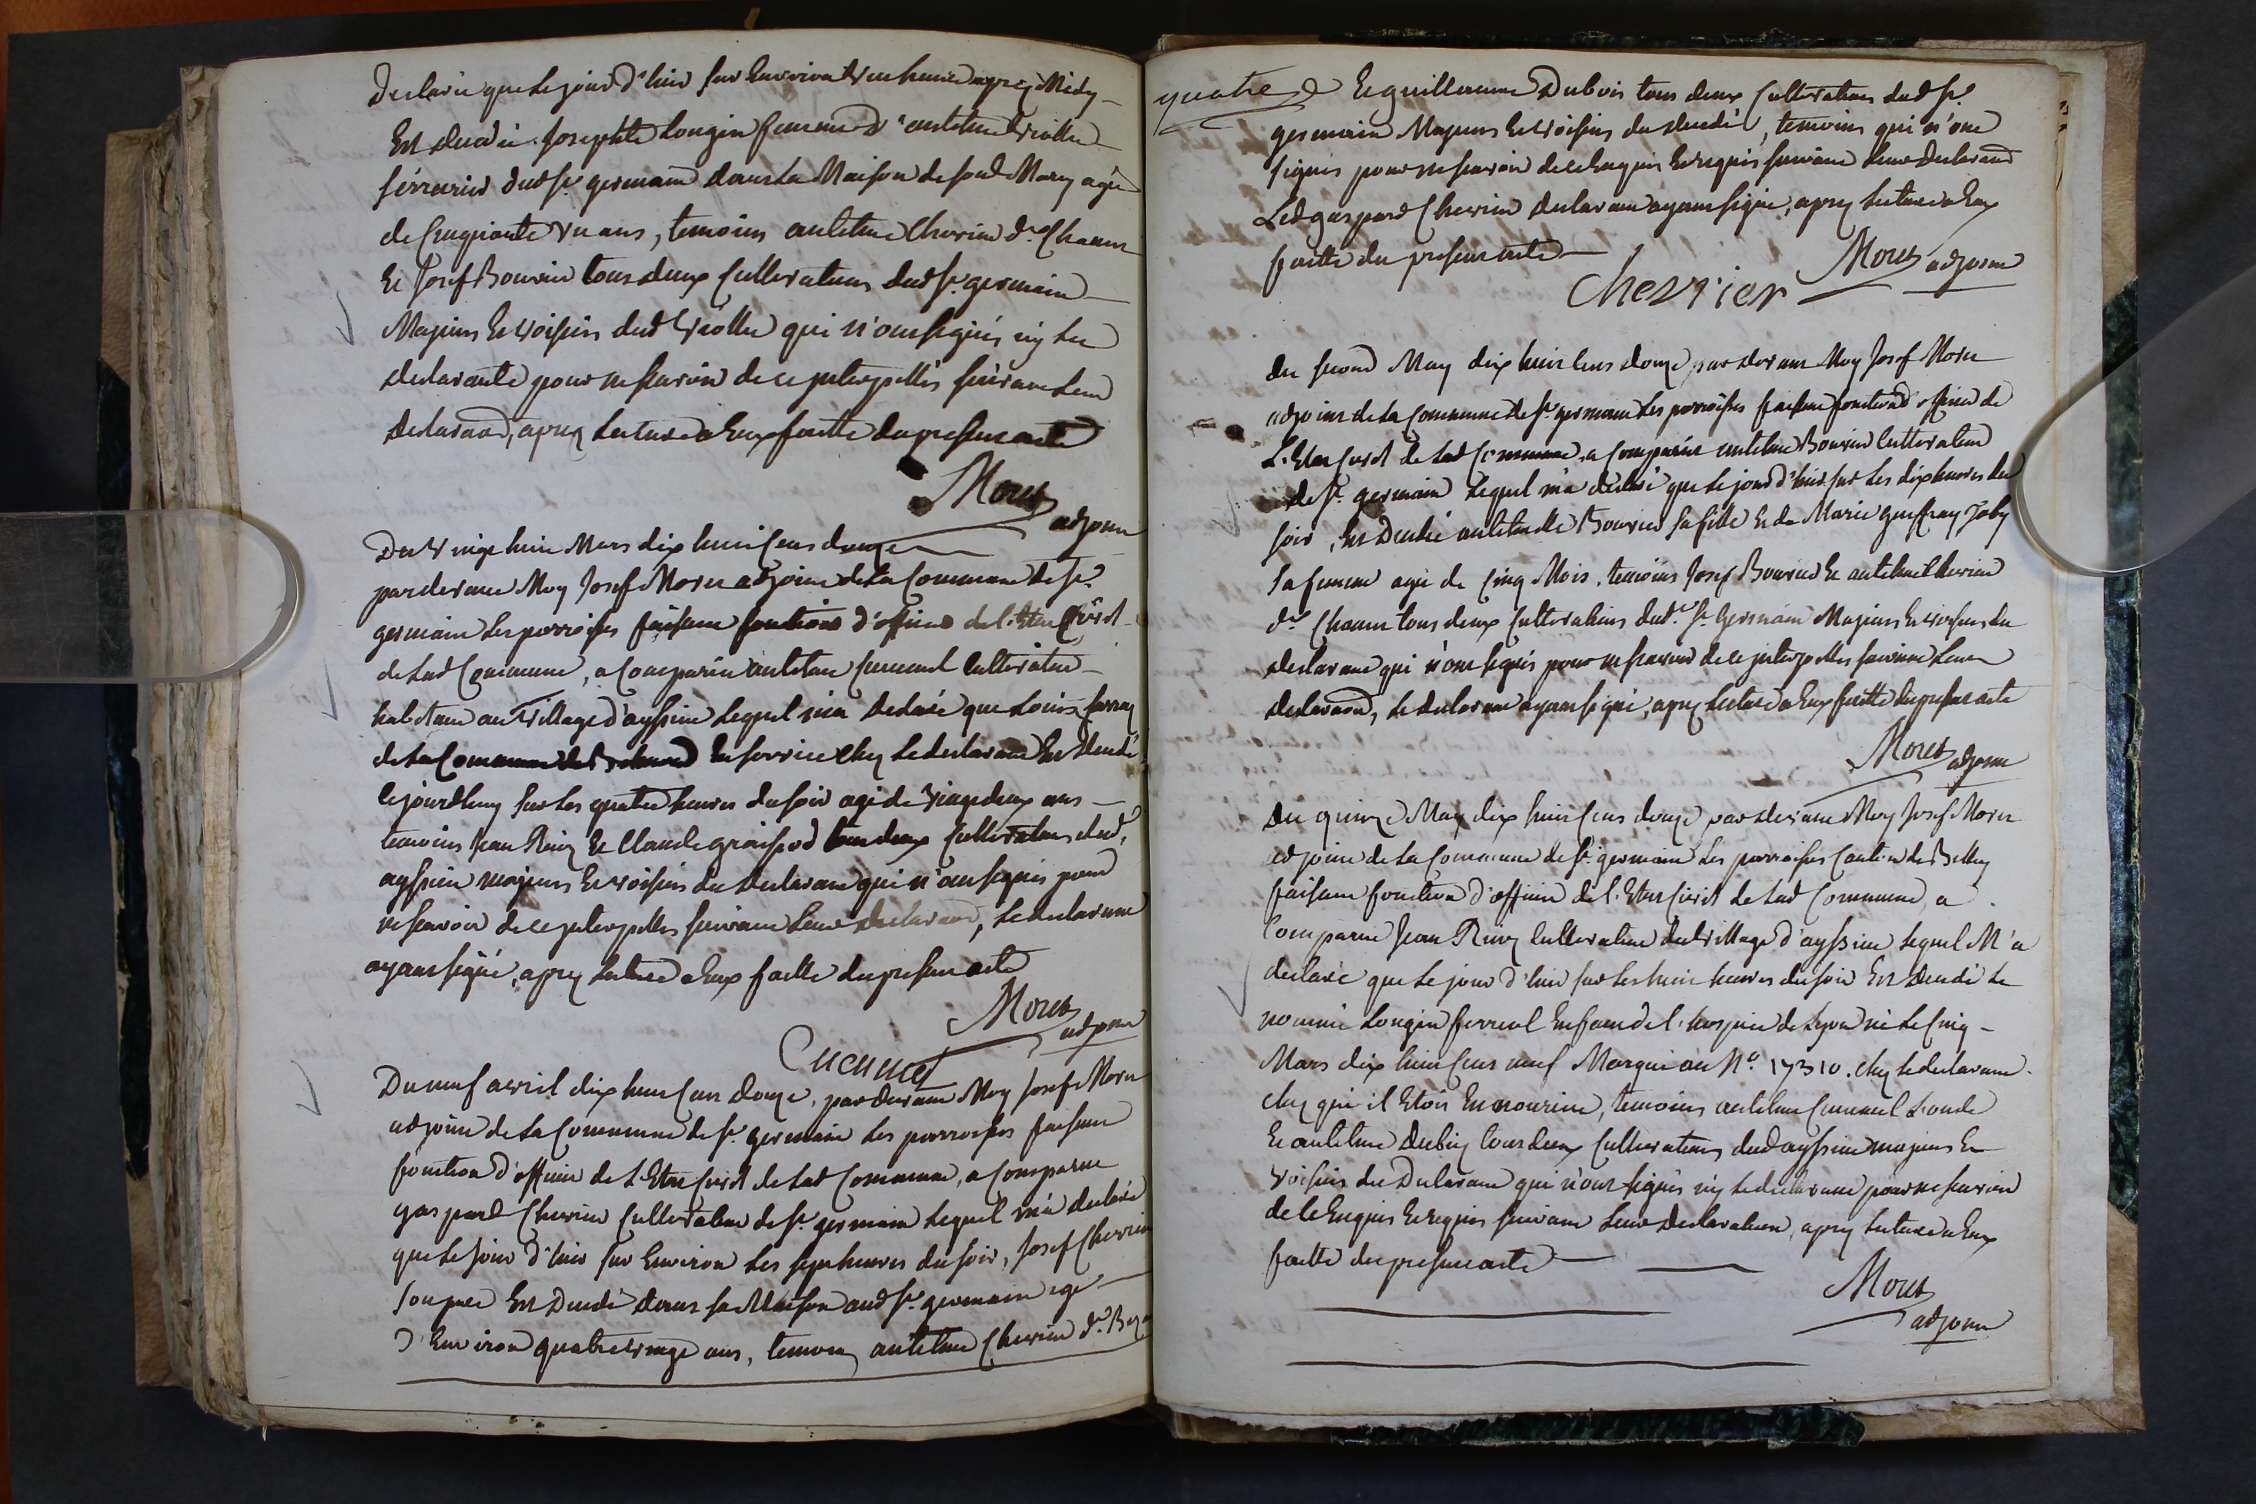 declaré que le jour d'hier sur environ une heure apres Midy
Est decedée Josephte Longin femme d'anthelme Violle
ferrurier dud St germain dans la Maison de sond Mary agée
de Cinquante un ans, temoins anthelme Chevrier dt Chaum
Et Josef Bouvier tous deux Cultivateurs dud St germain
Majeurs Et voisins dud Violle qui n'ont signés ny le
declarant pour ne savoir de ce interpellés suivant leur
declaraon, apres lecture a Eux faitte du present acte
Moret
adjoint
Du vingt huit Mars dix huit Cens douze
pardevant Moy Josef Moret adjoint de la Commune de St
germain les parroisses faisant fonctions d'officier de l'Etat Civil
de lad Commune, a Comparu anthelme Cucuuel Cultivateur
habitant au village d'ayssieu lequel m'a declaré que Louis
de la Commune de En service chez le declarant Est decedé
cejourdhuy sur les quatre heures du soir agé de vingt deux ans
temoins Jean Reuy Et Claude graisard tous deux Cultivateurs dud
ayssieu majeurs Et voisins du declarant qui n'ont signés pour
ne savoir de ce interpellés suivant leur declaraon, le declarant
ayant signé, apres lecture a Eux faitte du present acte
Moret
adjoint
Cucuuel
Du neuf avril dix huit Cens douze, pardevant Moy Josef Moret
adjoint de la Commune de St germain les parroisses faisant
fonction d'officier de L'Etat Civil de lad Commune, a Comparu
gaspard Chevrier Cultivateur de St germain lequel m'a declaré
que le jour d'hier sur Environ les sept heures du soir, Josef Chevrier
son pere Est Decedé dans sa Maison aud St germain agé
d'Environ quatre vingt ans, temoins anthelme Chevrier dt
quatre Et guillaume Dubois tous deux Cultivateurs dud St
germain Majeurs Et voisins du decedé, temoins qui n'ont
signés pour ne savoir de ce Enquis Et requis suivant leur declaraon
Led gaspard Chevrier declarant ayant signé, apres lecture a Eux
faitte du present acte
Moret adjoint
Chevrier
du second May dix huit Cens douze par devant Moy Josef Moret
adjoint de la Commune de St germain les parroisses faisant fonction d'officier de
L'Etat Civil de lad Commune, a Comparu anthelme Bouvier Cultivateur
de St germain lequel m'a declaré que le jour d'hier sur les dix heures du
soir, Est Decedée anthelmette Bouvier sa fille Et de Marie geuffray Joly
sa femme agée de Cinq Mois, temoins Josef Bouvier Et anthelme Chevrier
dt Chaum tous deux Cultivateurs dud St Germain Majeurs Et voisins du
declarant qui n'ont signés pour ne savoir de ce interpellés suivant leur
declaraon, le declarant ayant signé, apres lecture a Eux faitte du present acte
Moret adjoint
Du quinze May dix huit Cens douze pardevant Moy Josef Moret
adjoint de la Commune de St germain les parroisses Canton de Belley
faisant fonction d'officier de l'Etat Civil de lad Commune, a
Comparu Jean Reuy Cultivateur du village d'ayssieu lequel M'a
declaré que le jour d'hier sur les huit heures du soir Est decedé le
nommé Longin ferreol Enfant de l'hospice de Lyon né le Cinq
Mars dix huit Cens neuf Marqué au No 17310. chez le declarant
chez qui il Etoit En nourice, temoins anthelme Cucuuel L'oncle
Et anthelme Dubiez tous deux Cultivateurs dud ayssieu majeurs Et
voisins du Declarant qui n'ont signés ny le declarant pour ne savoir
de ce Enquis Et requis suivant leur declaration, apres lecture a Eux
faitte du present acte
Moret
adjoint